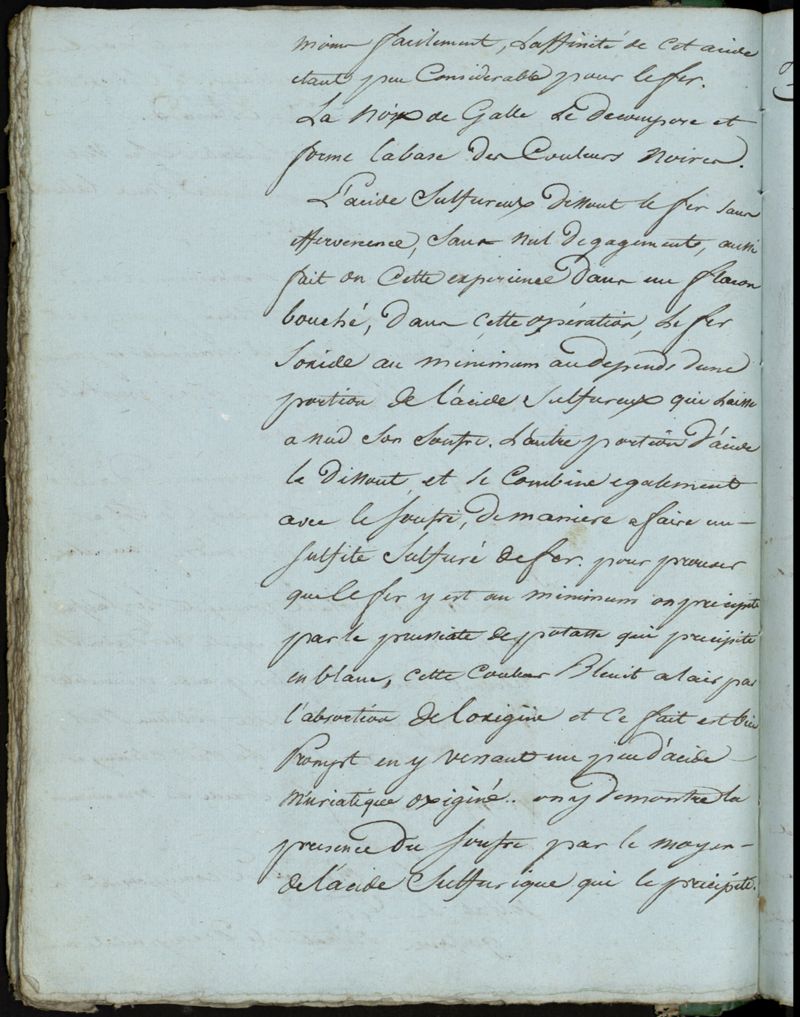 mieux facilement, L'affinité de Cet acide
etant peu Considerable pour le fer.
La Noix de Galle Le decompose et
forme la base Des Couleurs Noires.
L'acide Sulfureux Dissout le fer Sans
effervescence, Sans Nul Degagement, aussi
fait on Cette experience Dans un flacon
bouché, Dans Cette opération, Le fer
Soxide au minimum au depends dune
portion de l'acide Sulfureux qui Laisse
a nud Son Soufre. L'autre portion d'acide
le Dissout et Se Combine egalement
avec le Soufre, De maniere a faire un
Sulfite Sulfuré de fer. pour prouver
que le fer y est au minimum on precipite
par le prussiate de potasse qui precipite
en blanc, cette Couleur Bleuit a lair par
l'absortion de loxigène et Ce fait est bien
Prompt en y versant un peu d'acide
Muriatique oxigéné.. on y demontre la
presence Du Soufre par le moyen
de l'acide Sulfurique qui le précipite.